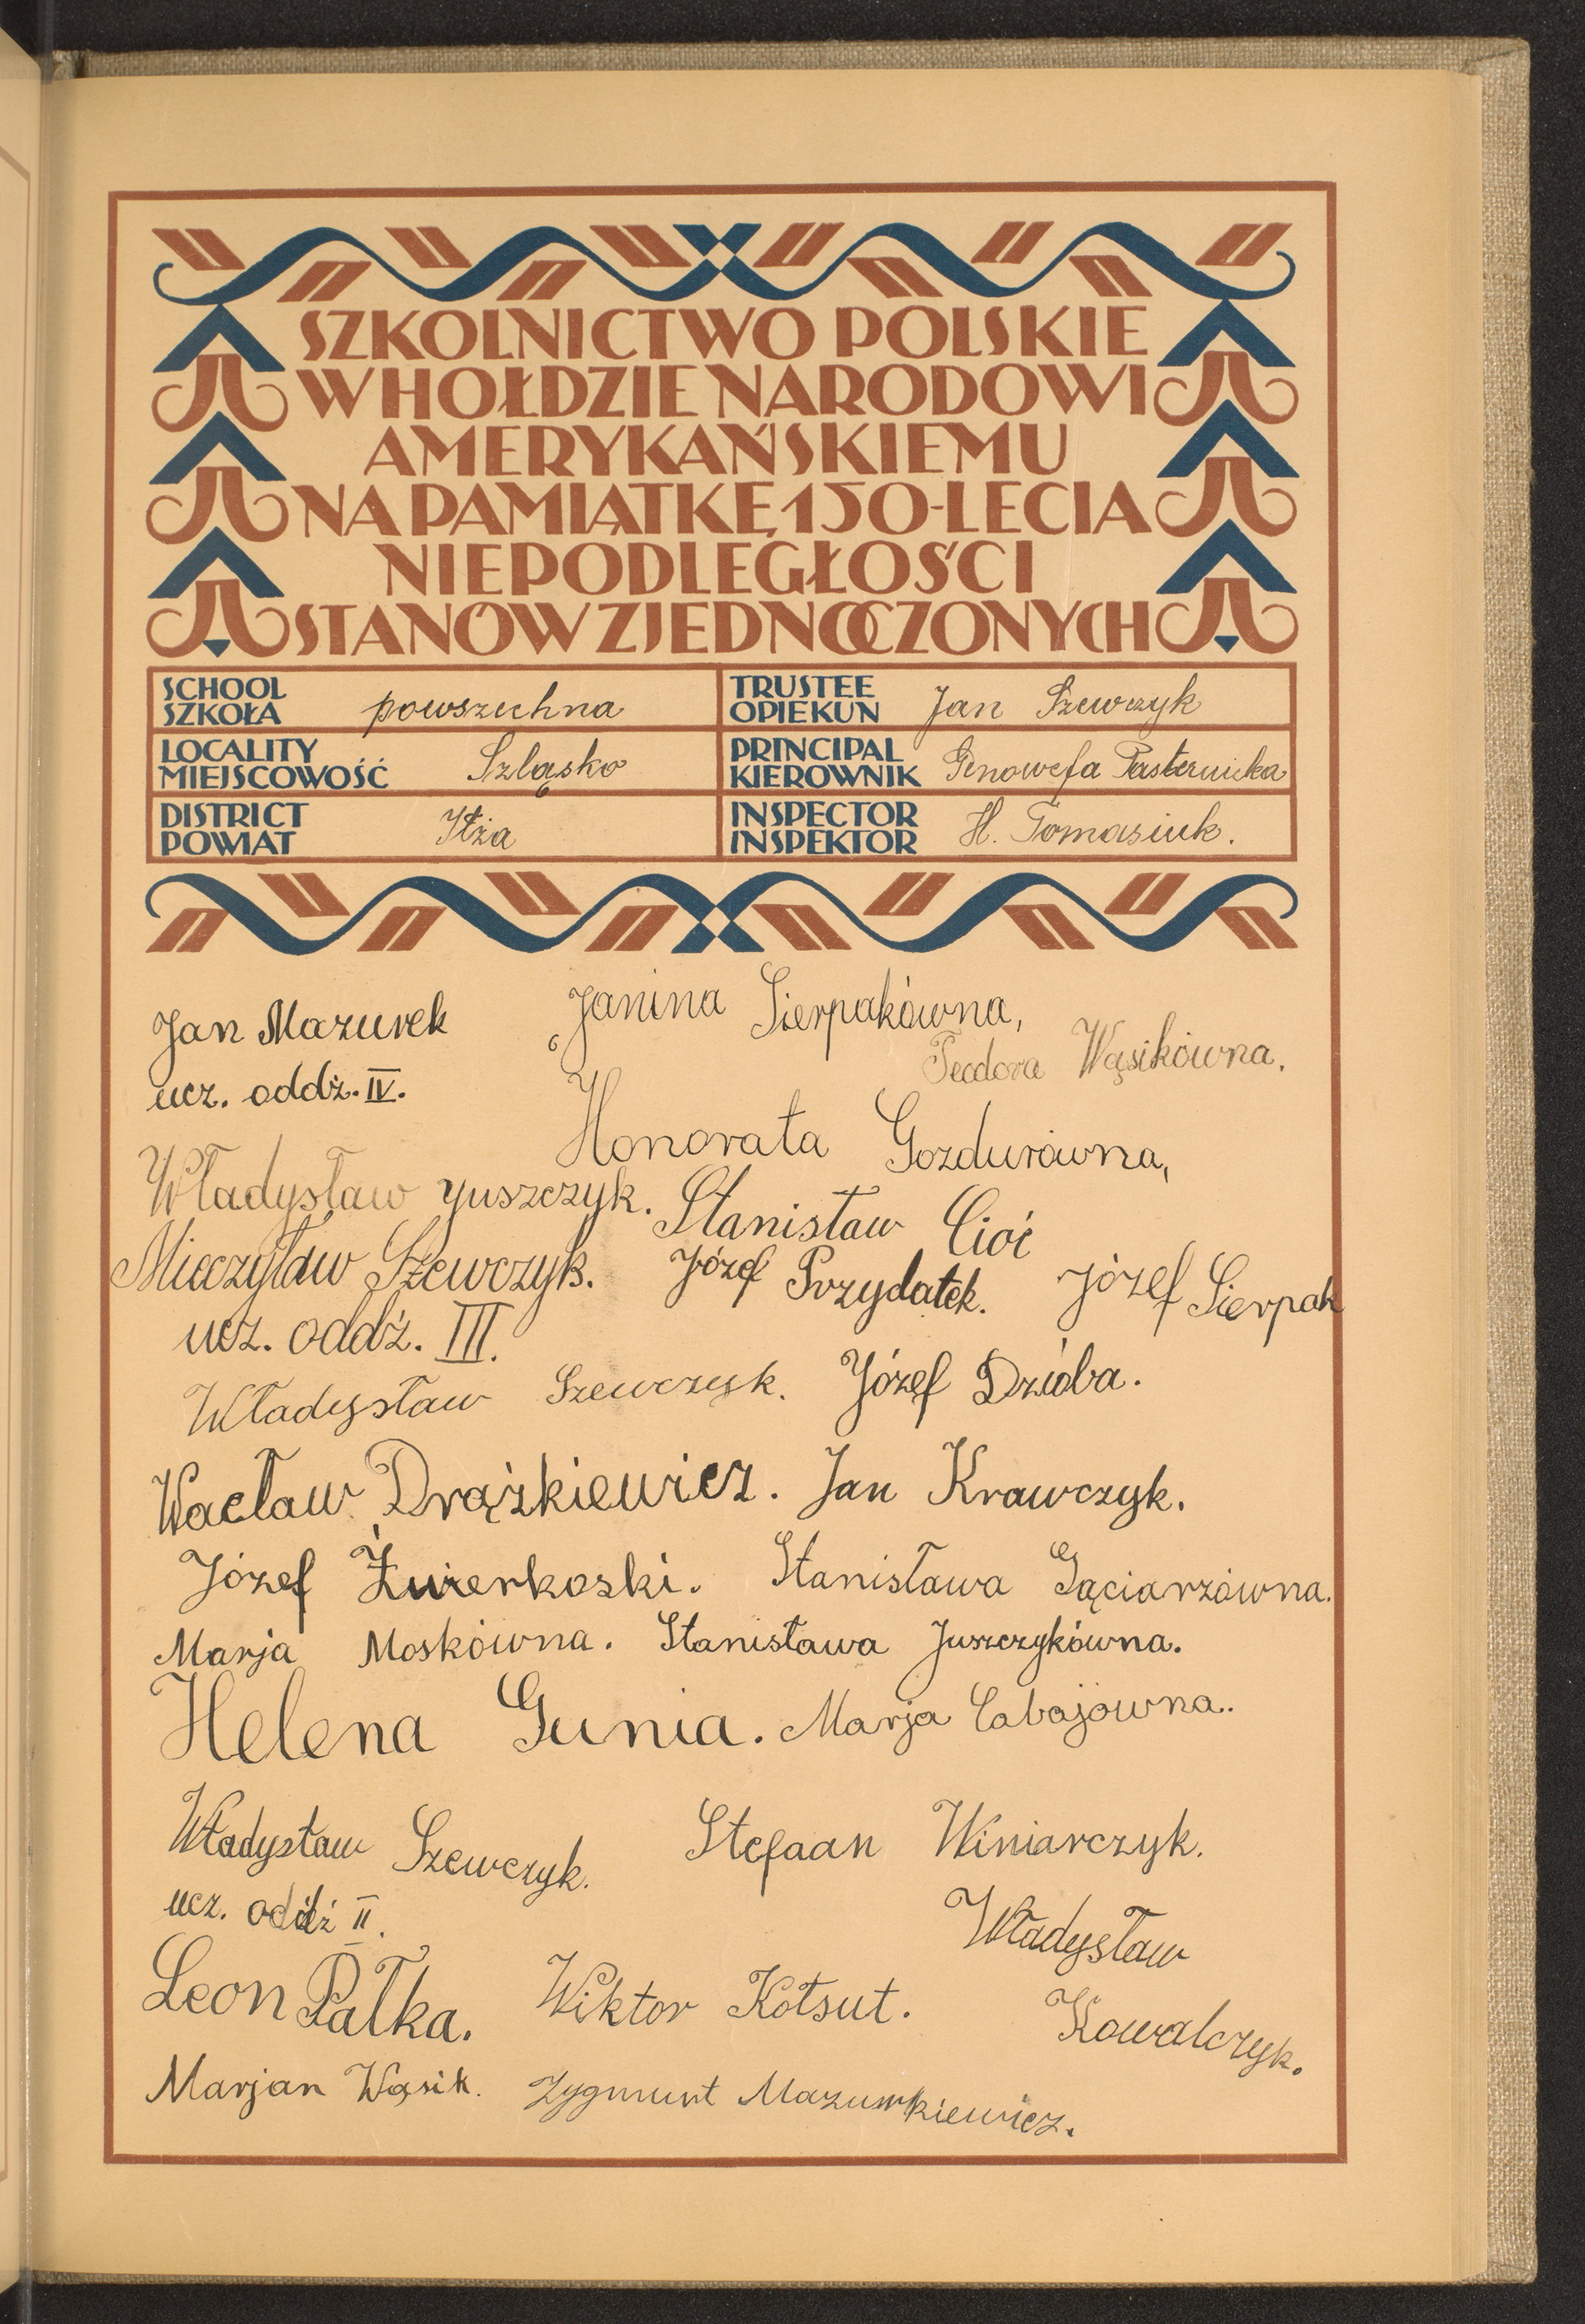 SZKOLNICTWO POLSKIE
W HOŁDZIE NARODOWI
AMERYKAŃSKIEMU
NA PAMIĄTKĘ 150-LECIA
NIEPODLEGŁOŚCI
STANÓW ZJEDNOCZONYCH
SCHOOL
SZKOŁA powszechna
TRUSTEE
OPIEKUN Jan Szewczyk
LOCALITY
MIEJSCOWOŚĆ Szląsko
PRINCIPAL
KIEROWNIK Genowefa Pasternicka
DISTRICT
POWIAT Iłża
INSPECTOR
INSPEKTOR H. Tomasiuk.
Jan Mazurek
ucz. oddż. IV.
Janina Sierpakówna,
Teodora Wąsikówna.
Honorata Gozdurówna,
Władysław Yuszczyk.
Stanisław Cioć
Mieczysław Szewczyk. Józef Przydatek. Józef Sierpak
ucz. oddż. III.
Władysław Szewczyk. Józef Dzióba.
Wacław Drążkiewicz. Jan Krawczyk.
Józef Żwierkoski. Stanisława Gąciarzówna.
Marja Moskówna. Stanisława Juszczykówna.
Helena Gunia. Marja Cabajówna.
Władysław Szewczyk. Stefaan Winiarczyk.
ucz. oddź II.
Władysław
Kowalczyk.
Leon Pałka. Wiktor Kotsut.
Marjan Wąsik. Zygmunt Mazurkiewicz.